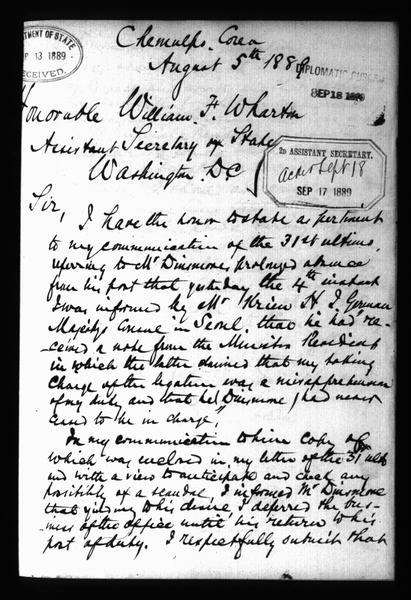 Chemulpo, Corea
August 5th 1889
DEPARTMENT OF STATE
13 1889
RECEIVED.
DIPLOMATIC BUREAU
SEP 18 1889
Honorable William F. Wharton
Assistant Secretary of State
Washington DC
2D ASSISTANT SECRETARY.
Sept 18
SEP 17 1889
Sir,
I have the honor to state as pertinent
to my communication of the 31st ultimo,
referring to Mr Dinsmore, prolonged absence
from his post that yesterday the 4th instant
I was informed by Mr Krien H. I. German
Majesty's Consul in Seoul, that he had re-
ceived a note from the Minister Resident
in which the latter claimed that my taking
charge of the legation was a misapprehension
of my duty and that he (Dinsmore) had never
ceased to be in charge,"
In my communication to him copy of
which was enclosed in my letter of the 31st ult
and with a view to anticipate and check any
possibility of a scandal, I informed Mr Dinsmore
that yielding to his desire, I deferred the bus-
iness of the office until his return to his
post of duty. I respectfully submit that